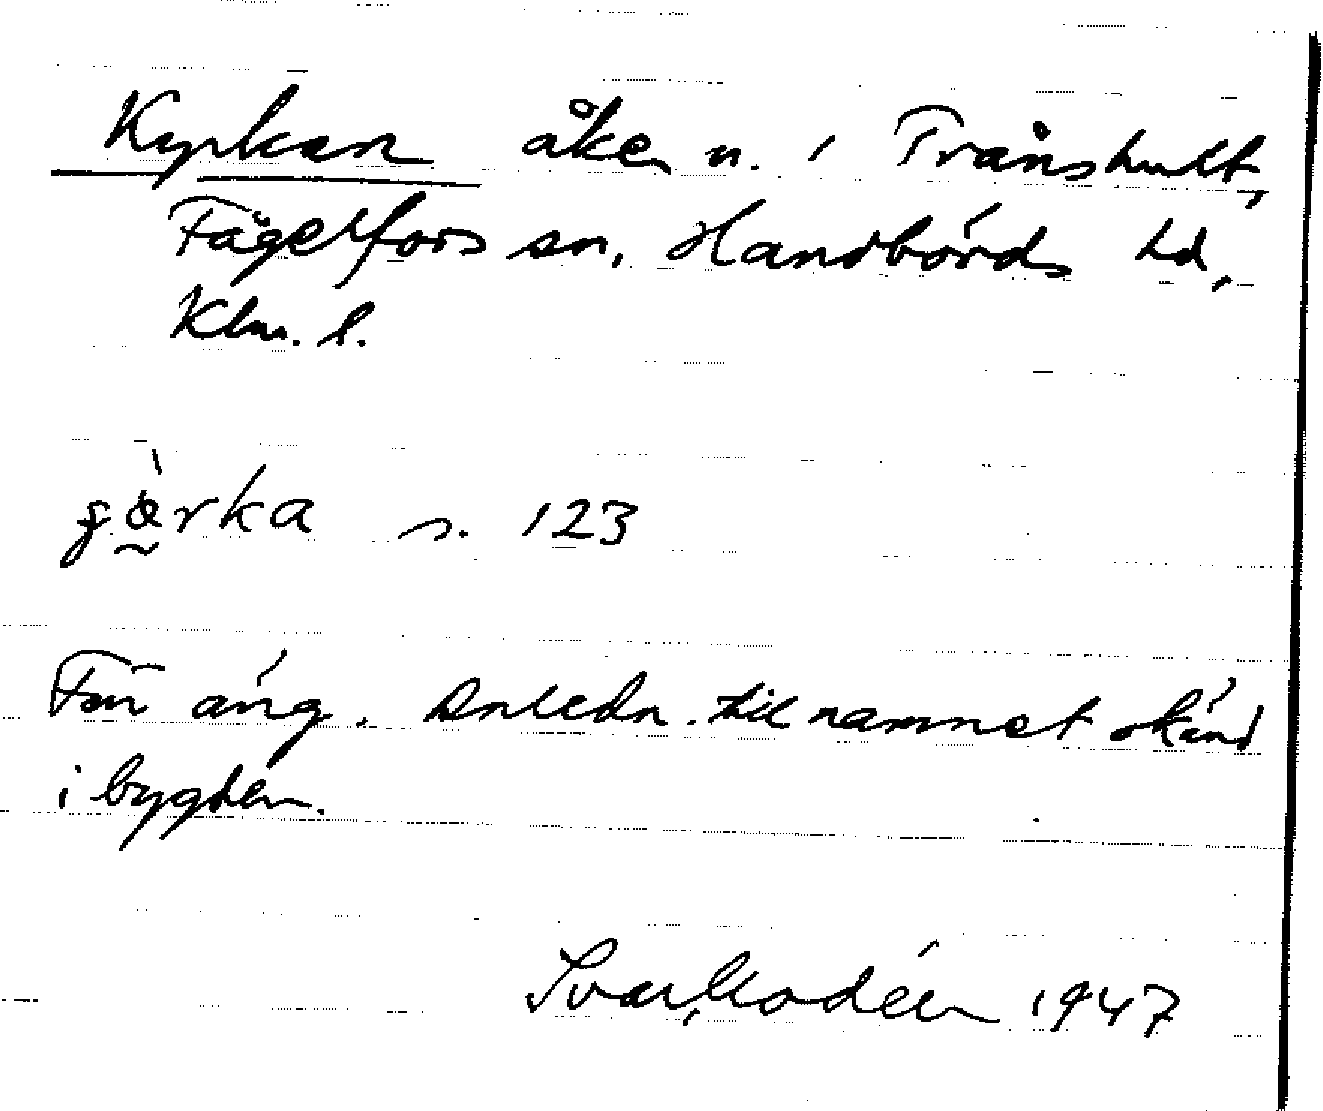 Kyrkan åker n. i Trånshult,
Fagelfors sn, Handbörds hd,
Klm. l.
s. 123
För äng. Anledn. till namnet okänd
i bygden.
1947